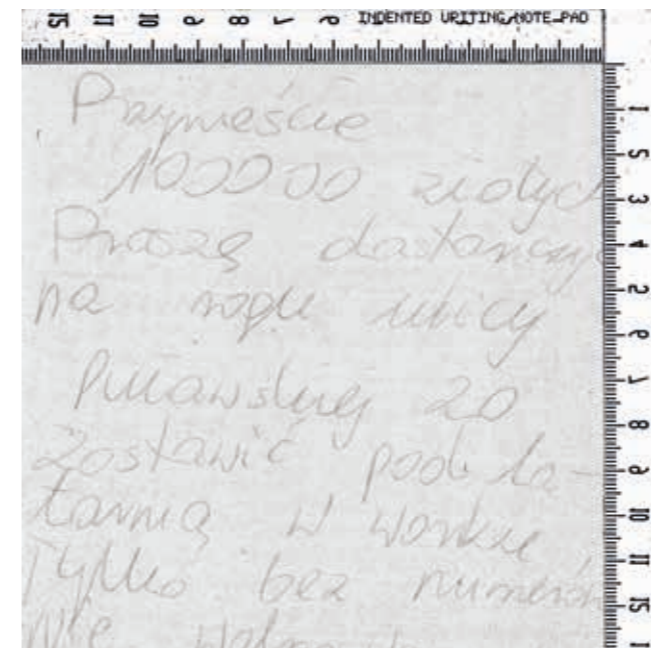 INDENTED WRITING NOTE-PAD
Przynieście
100000 złotych
Proszę dostarczyć
na rogu ulicy
Puławskiej 20
zostawić pod la-
tarnią w worku
Tylko bez numerów
Nie